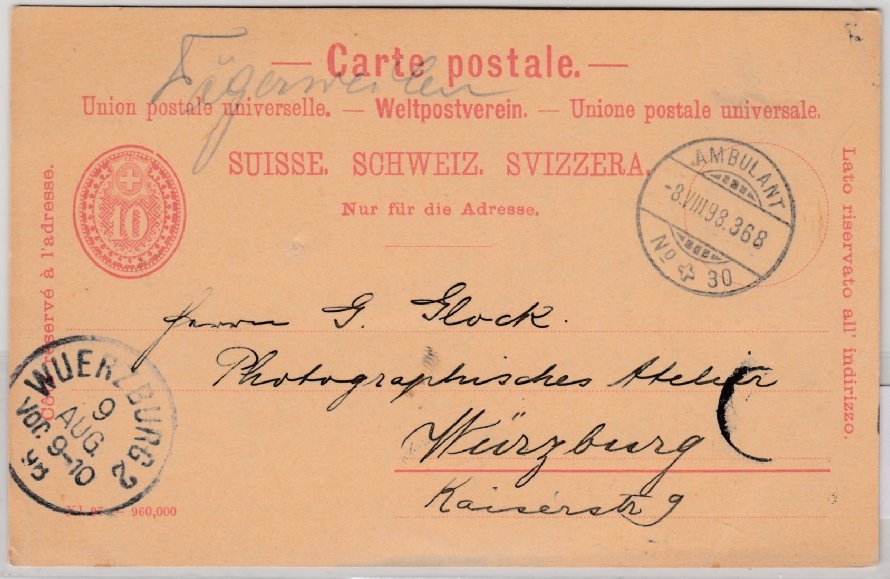 — Carte postale. —
Tägerweilen
Union postale universelle. — Weltpostverein. — Unione postale universale.
SUISSE. SCHWEIZ. SVIZZERA.
Nur für die Adresse.
10
Côté réservé à l'adresse.
Lato riservato all' indirizzo.
AMBULANT
-8.VIII.98.368
No 30
Herrn G. Glock.
Photographisches Atelier
Würzburg
Kaiserstr 9
WUERZBURG 2
9
AUG.
Vor. 9-10
98
XI. 97. — 960,000